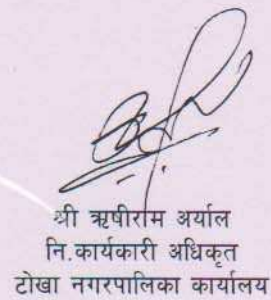 श्री ऋषीराम अर्याल
नि.कार्यकारी अधिकृत
टोखा नगरपालिका कार्यालय